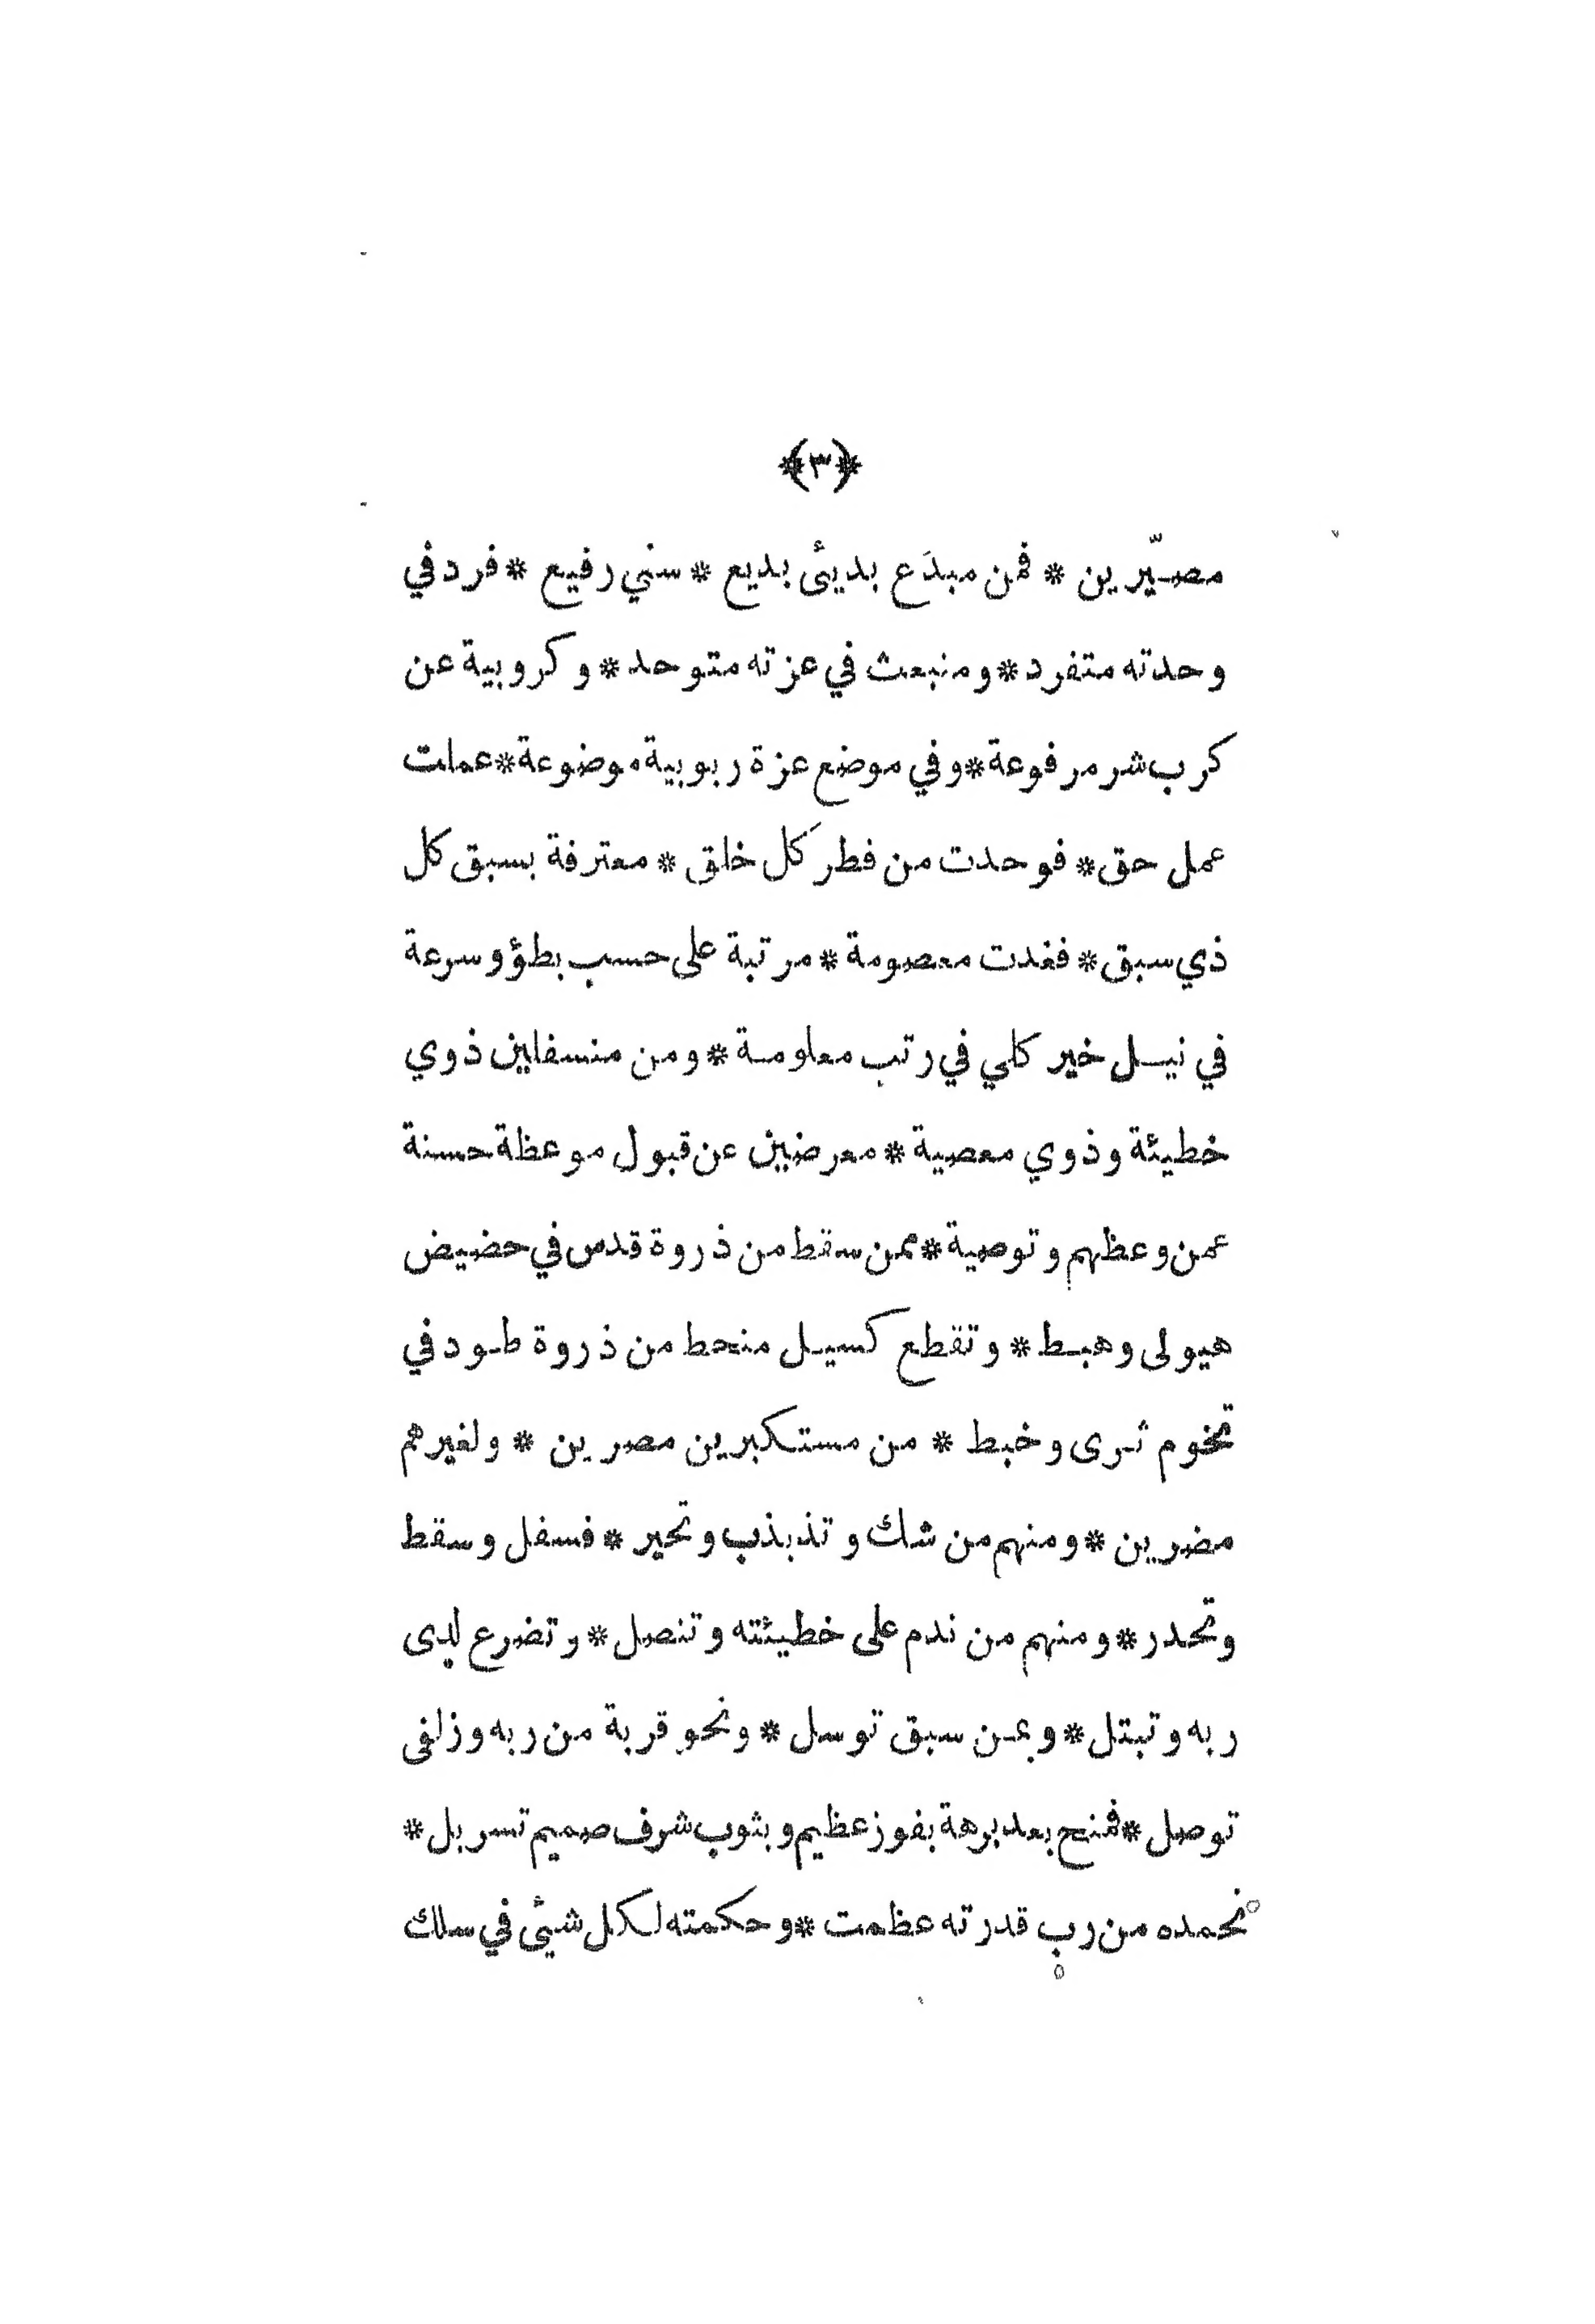 *(٣)*
مصيّرين * فمن مبدَع بديئ بديع * سني رفيع * فرد في
وحدته متفرد * ومنبعث في عزته متوحد * وكروبية عن
كرب شر مرفوعة * وفي موضع عزة ربوبية موضوعة * عملت
عمل حق * فوحدت من فطر كل خلق * معترفة بسبق كل
ذي سبق * فغدت معصومة * مرتبة على حسب بطؤ وسرعة
في نيل خير كلي في رتب معلومة * ومن منسفلين ذوي
خطيئة وذوي معصية * معرضين عن قبول موعظة حسنة
عمن وعظهم وتوصية * ممن سقط من ذروة قدس في حضيض
هيولى وهبط * وتقطع كسيل منحط من ذروة طود في
تخوم ثرى وخبط * من مستكبرين مصرين * ولغيرهم
مضرين * ومنهم من شك وتذبذب وتحير * فسفل وسقط
وتحدر * ومنهم من ندم على خطيئته وتنصل * وتضرع لدى
ربه وتبتل * وبمن سبق توسل * ونحو قربة من ربه وزلفى
توصل * فمنح بعد برهة بفوز عظيم وبثوب شرف صميم تسربل *
نحمده من رب قدرته عظمت * وحكمته لكل شيئ في سلك